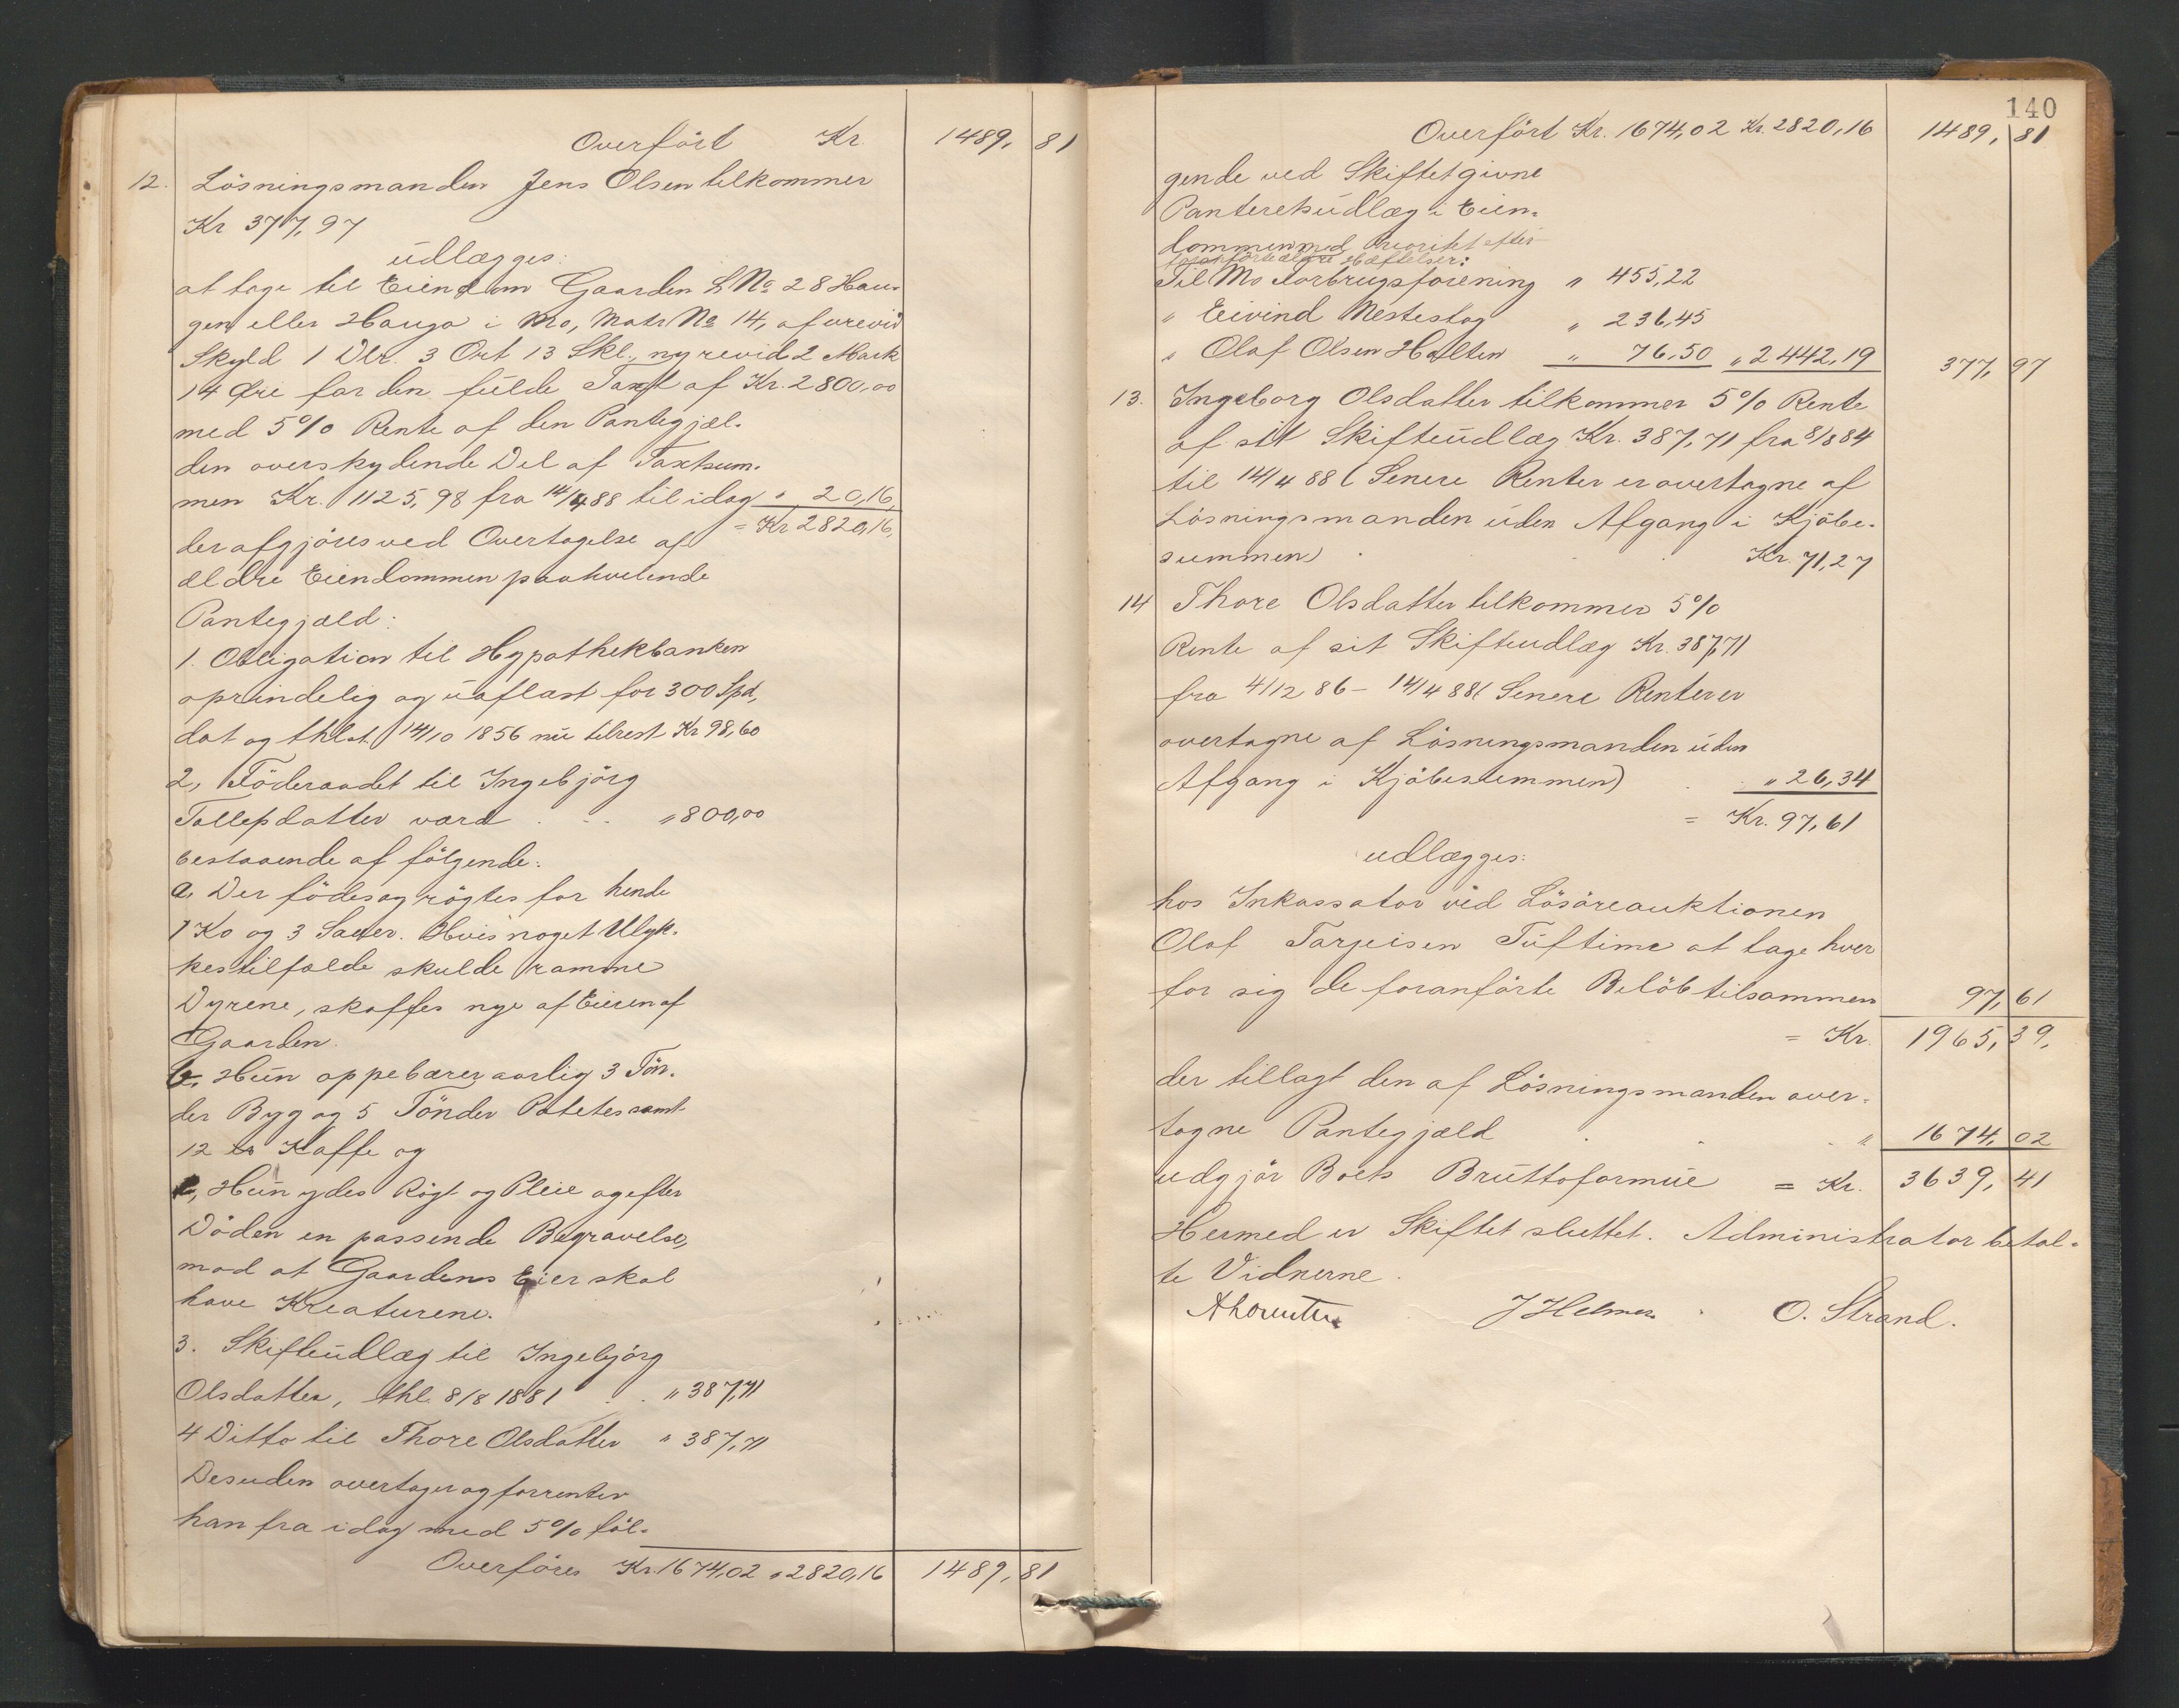 Overført Kr. 1489,81
12. Løsningsmanden Jens Olsen tilkommer
Kr 377,97
udlægges:
at tage til Eiendom Gaarden L No 28 Hau-
gen eller Hauga i Mo, Matr No 14, af urevid
Skyld 1 Dlr. 3 Ort 13 Skl., ny revid 2 Mark
14 Øre for den fulde Taxt af Kr. 2800,00
med 5% Rente af den Pantegjæl-
den overskydende Del af Taxtsum-
men Kr. 1125,98 fra 14/4 88 til idag " 20,16
= Kr 2820,16,
der afgjøres ved Overtagelse af
ældre Eiendommen paahvilende
Pantegjæld:
1. Obligation til Hypothekbanken
oprindelig og uaflæst for 300 Spd,
dat og thlst. 14/10 1856 nu tilrest Kr 98,60
2, Föderaadet til Ingebjörg
Tollefsdatter værd . - - " 800,00
bestaaende af fölgende:
a, Der födes og rögtes for hende
1 Ko og 3 Sauer. Hvis noget Ulyk-
kestilfælde skulde ramme
Dyrene, skaffes nye af Eieren af
Gaarden.
b, Hun oppebærer aarlig 3 Tön-
der Byg og 5 Tönder Poteter samt
12 Kaffe og
c, Hun ydes Rögt og Pleie og efter
Döden en passende Begravelse,
mod at Gaardens Eier skal
have Kreaturene.
3. Skifteudlæg til Ingebjörg
Olsdatter, thl. 8/8 1881 . . " 387,71
4 Ditto til Thore Olsdatter " 387,71
Desuden overtager og forrenter
han fra idag med 5% föl-
Overføres Kr. 1674,02 " 2820,16 1489,81
140
Overfört Kr. 1674,02 Kr. 2820,16 1489,81
gende ved Skiftet givne
Panteretsudlæg i Eien-
dommen med Prioritet efter
foranførte ældre Hæftelser:
Til Mo Forbrugsforening " 455,22
" Eivind Nestestog " 236,45
" Olaf Olsen Holten " 76,50 " 2442,19 377,97
13. Ingeborg Olsdatter tilkommer 5% Rente
af sit Skifteudlæg Kr. 387,71 fra 8/8 84
til 14/4 88 (Senere Renter er overtagne af
Løsningsmanden uden Afgang i Kjöbe-
summen) . . . Kr. 71,27
14 Thore Olsdatter tilkommer 5%
Rente af sit Skifteudlæg Kr. 387,71
fra 4/12 86 - 14/4 88 (Senere Renter er
overtagne af Løsningsmanden uden
Afgang i Kjöbesummen) . . " 26,34
= Kr. 97,61
udlægges:
hos Inkassator ved Lösöreauktionen
Olaf Tarjeisen Tuftime at tage hver
for sig de foranförte Belöb tilsammen 97,61
= Kr. 1965,39,
der tillagt den af Lösningsmanden over-
tagne Pantegjæld . . . " 1674,02
udgjör Boets Bruttoformue = Kr. 3639,41
Hermed er Skiftet sluttet. Administrator betal-
te Vidnerne.
J Helmen . O. Strand.